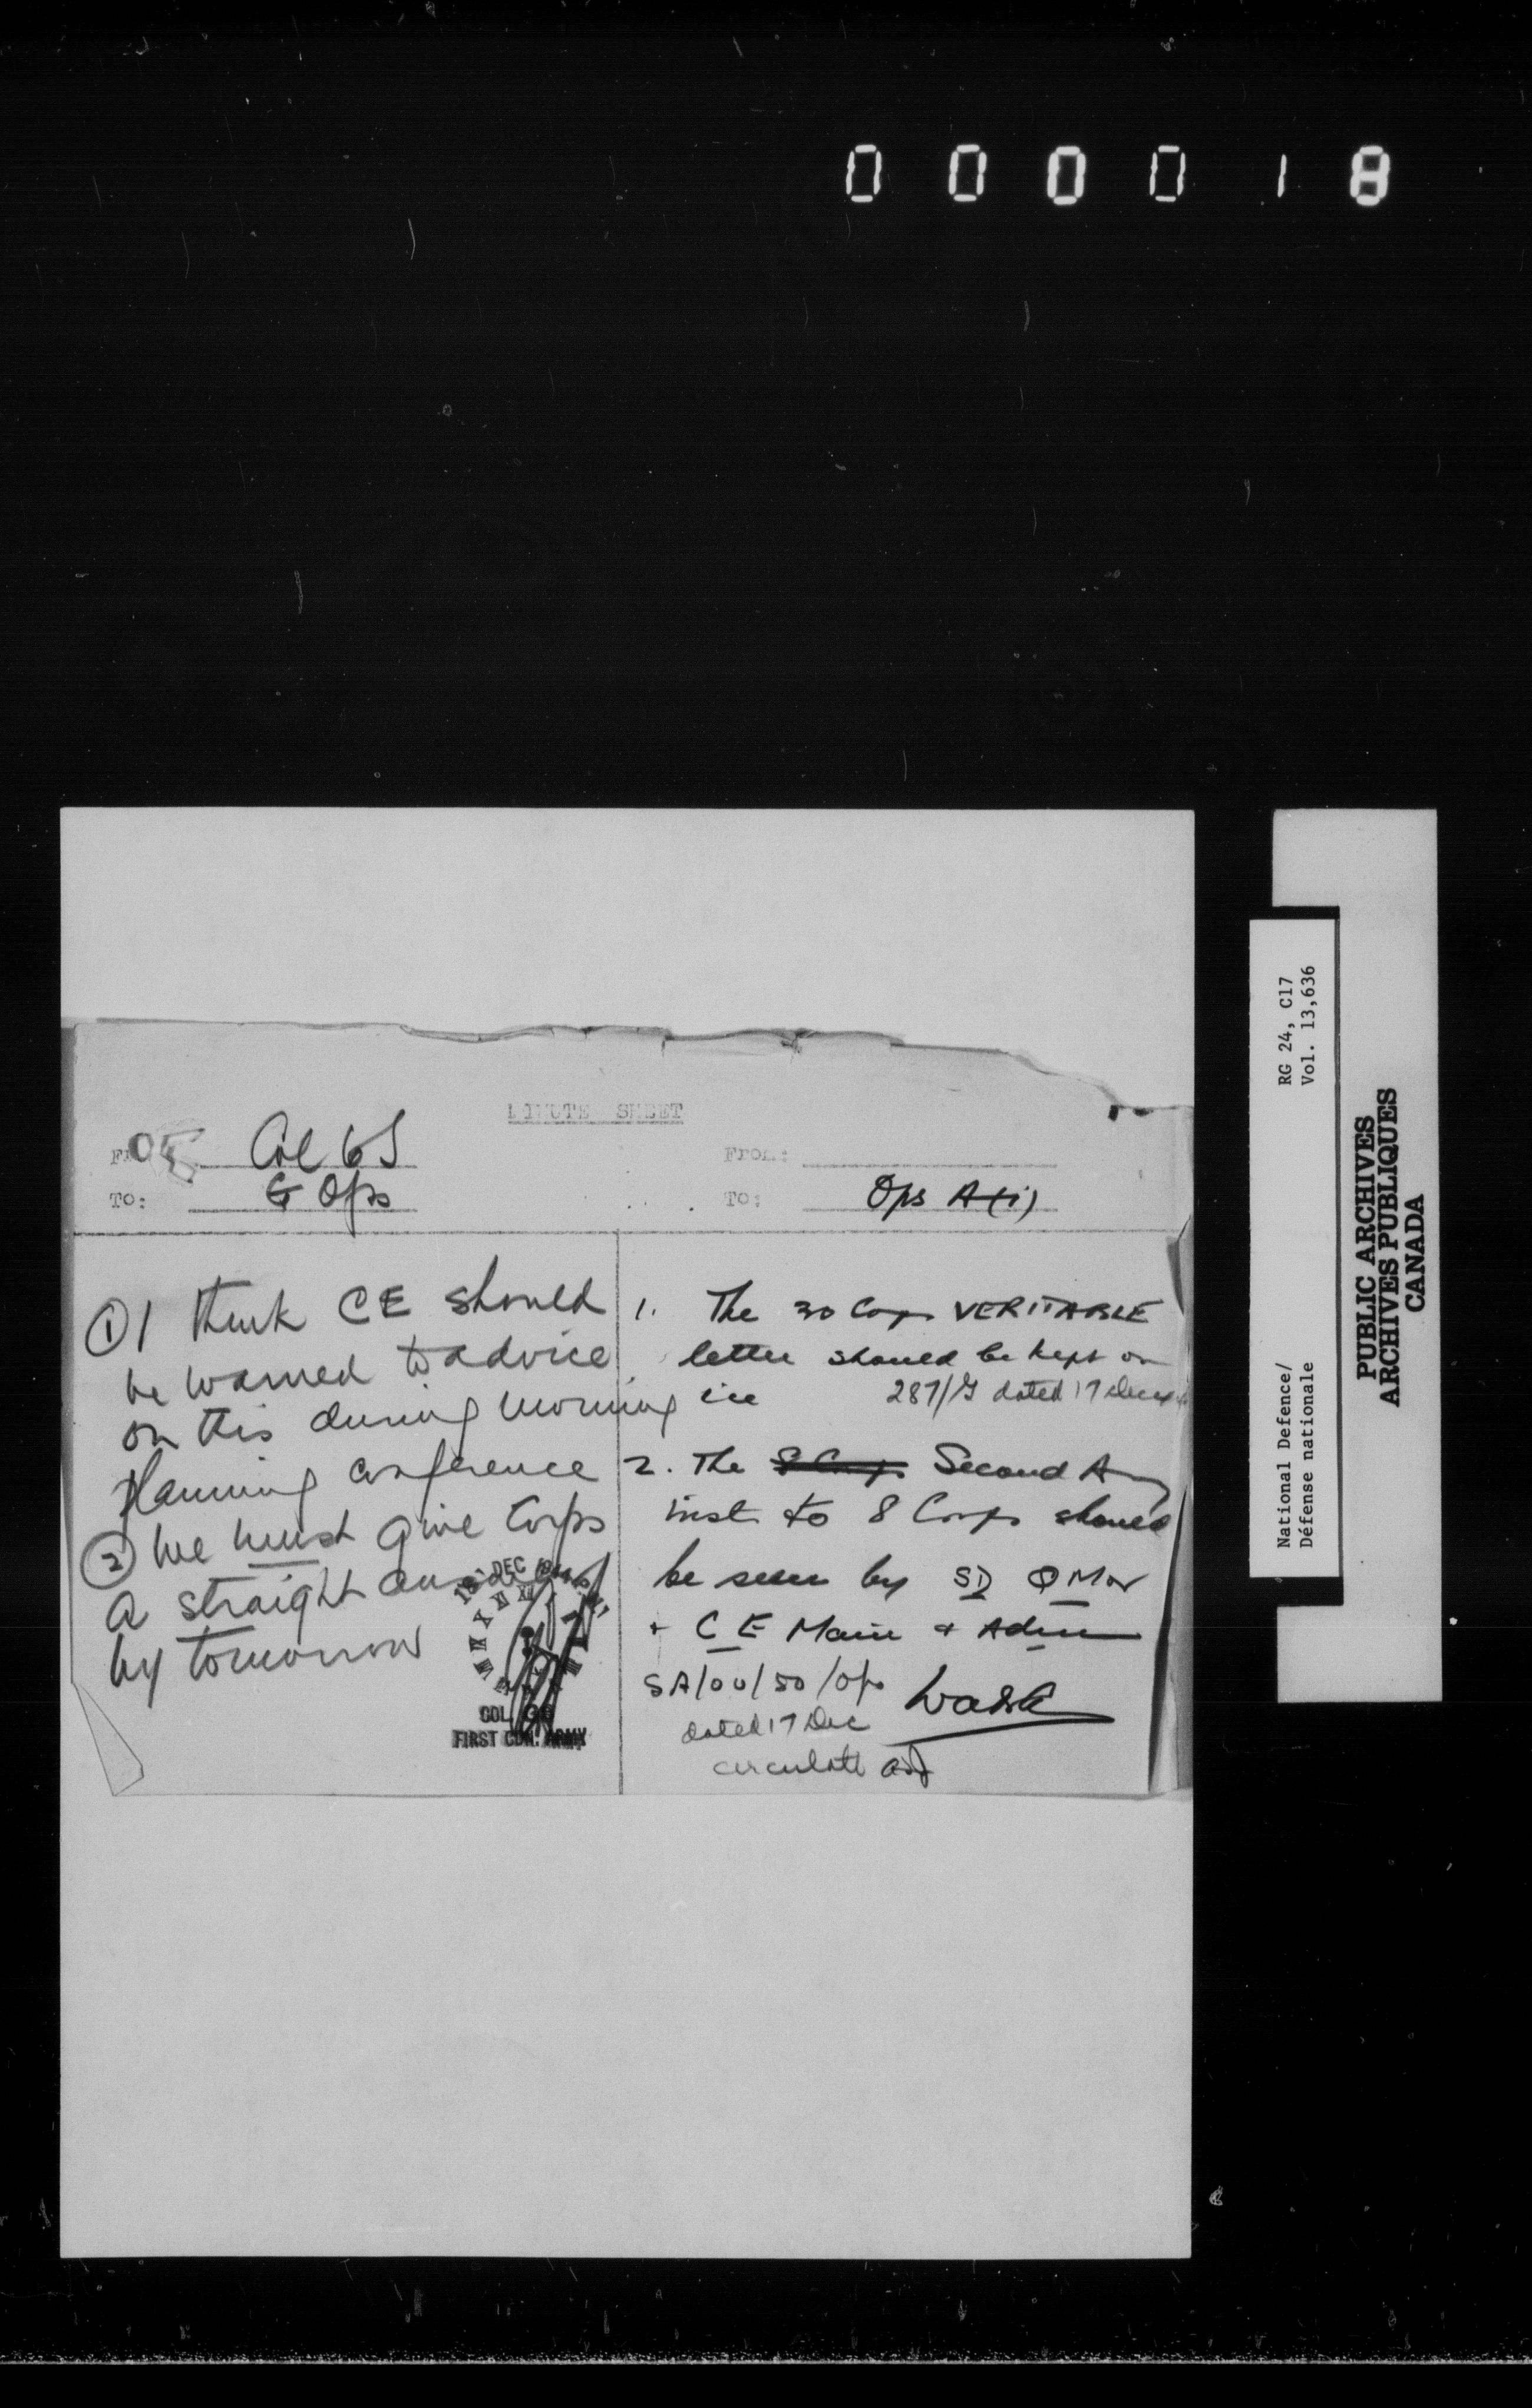 000018
MINUTE SHEET
Col GS
TO: G Ops
From:
TO: Ops A(i)
① I think CE should
be warned to advice
on this during morning
planning conference
② We must give Corps
a straight answer
by tomorrow
DEC
COL GS
FIRST CDN. ARMY
1. The 30 Corps VERITABLE
letter should be kept on
ice 287/G dated 17 Dec
2. The 8 Corps Second Army
inst to 8 Corps should
be seen by SD Q Mov
+ CE Main + Adm
SA/00/50/Ops
dated 17 Dec
circulate
RG 24, C17
Vol. 13,636
National Defence/
Défense nationale
PUBLIC ARCHIVES
ARCHIVES PUBLIQUES
CANADA